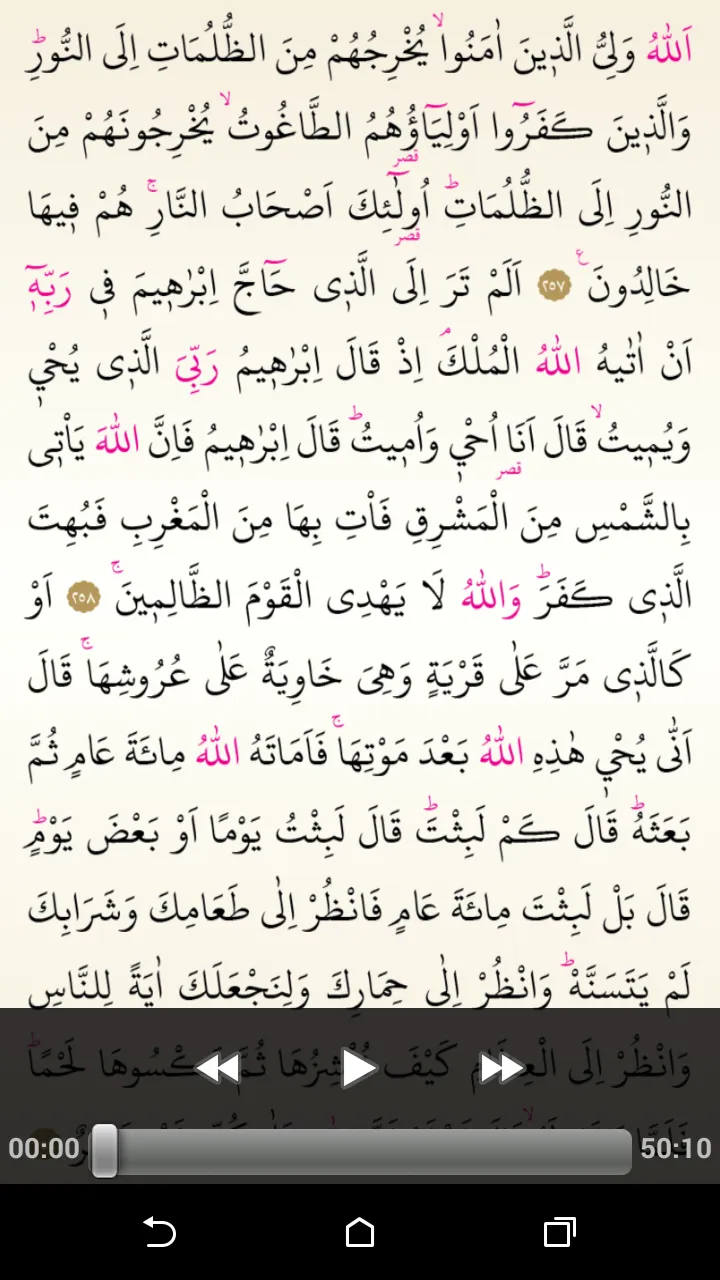 اَللّٰهُ وَلِيُّ الَّذ۪ينَ اٰمَنُواۙ يُخْرِجُهُمْ مِنَ الظُّلُمَاتِ اِلَى النُّورِۜ
وَالَّذ۪ينَ كَفَرُٓوا اَوْلِيَٓاؤُ۬هُمُ الطَّاغُوتُۙ يُخْرِجُونَهُمْ مِنَ
قصر
النُّورِ اِلَى الظُّلُمَاتِۜ اُو۬لٰٓئِكَ اَصْحَابُ النَّارِۚ هُمْ ف۪يهَا
قصر
خَالِدُونَ۟ ﴿٢٥٧﴾ اَلَمْ تَرَ اِلَى الَّذ۪ى حَٓاجَّ اِبْرٰه۪يمَ ف۪ى رَبِّه۪ٓ
اَنْ اٰتٰيهُ اللّٰهُ الْمُلْكَۢ اِذْ قَالَ اِبْرٰه۪يمُ رَبِّيَ الَّذ۪ى يُحْي۪
وَيُم۪يتُۙ قَالَ اَنَا۬ اُحْي۪ وَاُم۪يتُۜ قَالَ اِبْرٰه۪يمُ فَاِنَّ اللّٰهَ يَأْت۪ى
قصر
بِالشَّمْسِ مِنَ الْمَشْرِقِ فَأْتِ بِهَا مِنَ الْمَغْرِبِ فَبُهِتَ
الَّذ۪ى كَفَرَۜ وَاللّٰهُ لَا يَهْدِى الْقَوْمَ الظَّالِم۪ينَۚ ﴿٢٥٨﴾ اَوْ
كَالَّذ۪ى مَرَّ عَلٰى قَرْيَةٍ وَهِيَ خَاوِيَةٌ عَلٰى عُرُوشِهَاۚ قَالَ
اَنّٰى يُحْي۪ هٰذِهِ اللّٰهُ بَعْدَ مَوْتِهَاۚ فَاَمَاتَهُ اللّٰهُ مِائَةَ عَامٍ ثُمَّ
بَعَثَهُۜ قَالَ كَمْ لَبِثْتَۜ قَالَ لَبِثْتُ يَوْمًا اَوْ بَعْضَ يَوْمٍۜ
قَالَ بَلْ لَبِثْتَ مِائَةَ عَامٍ فَانْظُرْ اِلٰى طَعَامِكَ وَشَرَابِكَ
لَمْ يَتَسَنَّهْۜ وَانْظُرْ اِلٰى حِمَارِكَ وَلِنَجْعَلَكَ اٰيَةً لِلنَّاسِ
وَانْظُرْ اِلَى الْعِظَامِ كَيْفَ نُنْشِزُهَا ثُمَّ نَكْسُوهَا لَحْمًاۜ
00:00 50:10